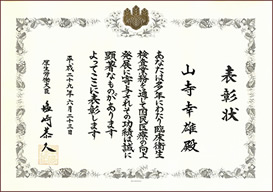 表彰状
山寺幸雄殿
あなたは多年にわたり臨床衛生
検査業務を通して国民医療の向上
発展に寄与されその功績は誠に
顕著なものがあります
よってここに表彰します
平成二十九年六月二十三日
厚生労働大臣
塩崎恭久